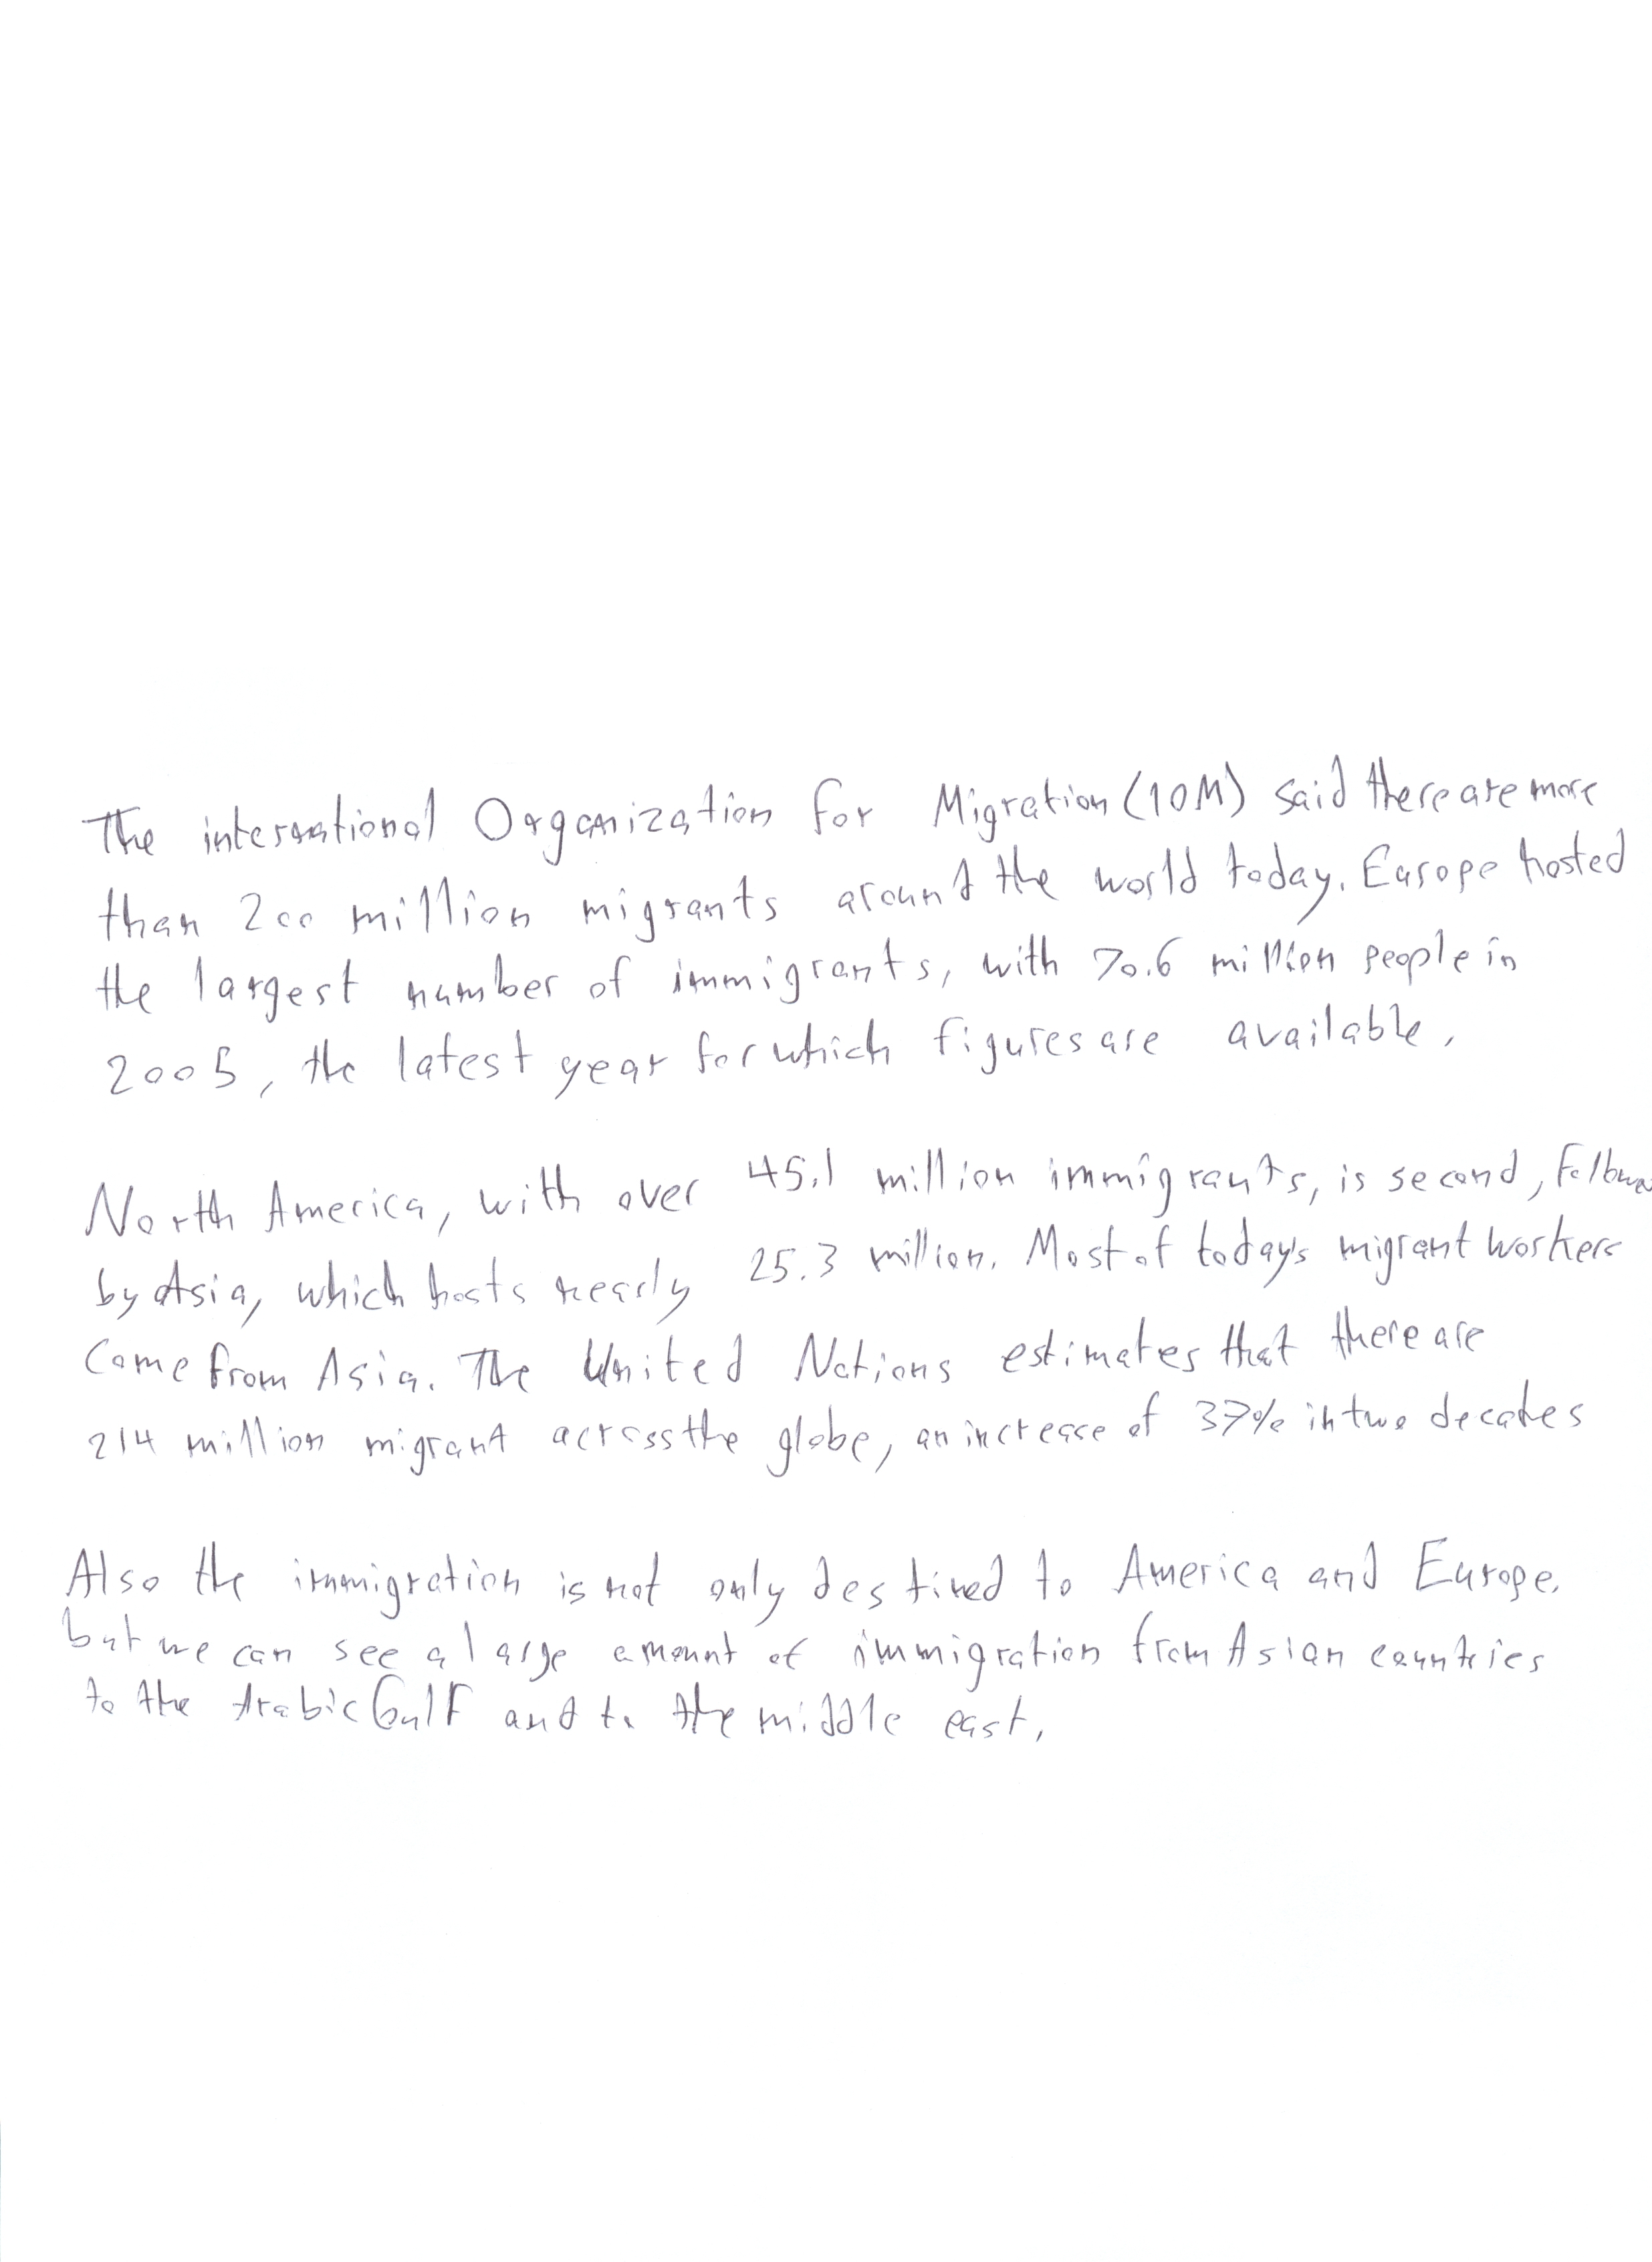 The international Organization for Migration (IOM) said there are more
than 200 million migrants around the world today. Europe hosted
the largest number of immigrants, with 70.6 million people in
2005, the latest year for which figures are available.
North America, with over 45.1 million immigrants, is second, Followed
by Asia, which hosts nearly 25.3 million. Most of today's migrant workers
Come from Asia. The United Nations estimates that there are
214 million migrant across the globe, an increase of 37% in two decades
Also the immigration is not only destined to America and Europe.
but we can see a large amount of immigration from Asian countries
to the Arabic Gulf and to the middle east.